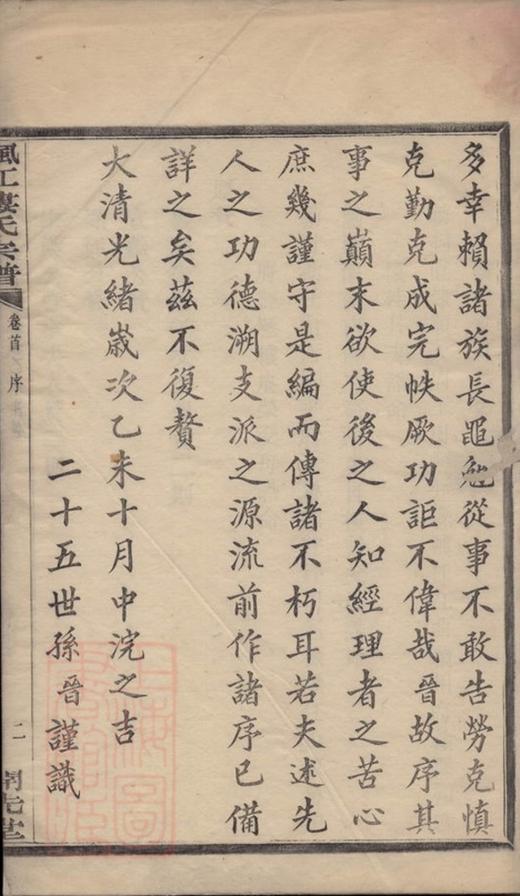 多幸賴諸族長黽勉從事不敢告勞克慎
克勤克成完帙厥功詎不偉哉晉故序其
事之巔末欲使後之人知經理者之苦心
庶幾謹守是編而傳諸不朽耳若夫述先
人之功德溯支派之源流前作諸序已備
詳之矣茲不復贅
大清光緒嵗次乙未十月中浣之吉
二十五世孫晉謹識
氏宗譜
卷首
序
二